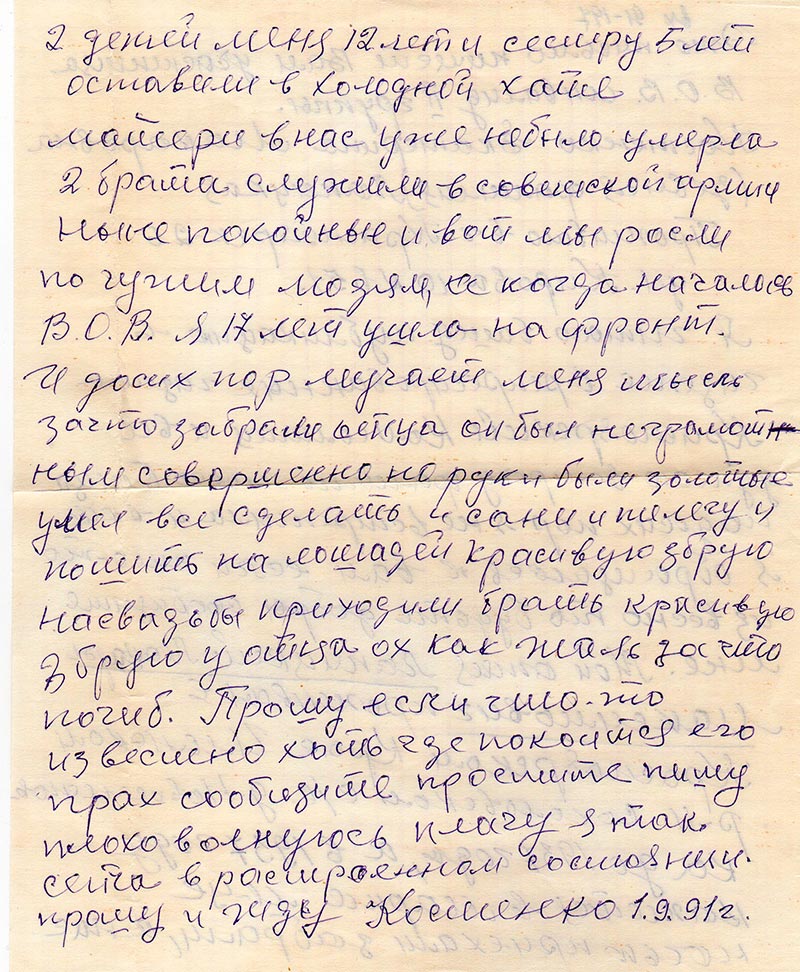 2 детей меня 12 лет и сестру 5 лет
оставили в холодной хате
матери в нас уже небыло умерла
2 брата служили в советской армии
ныне покойные и вот мы росли
по чужим людям, а когда началось
В.О.В. я 17 лет ушла на фронт.
И досих пор мучает меня мысль
зачто забрали отца он был неграмот
ным совершенно но руки были золотые
умел все сделать и сани и телегу и
пошить на лошадей красивую збрую
насвадьбы приходили брать красивую
збрую у отца ох как жаль за что
погиб. Прошу если что-то
известно хоть где покоится его
прах сообщите простите пишу
плохо волнуюсь плачу я так
в растроенном состоянии.
прошу и жду Костенко 1.9.91г.